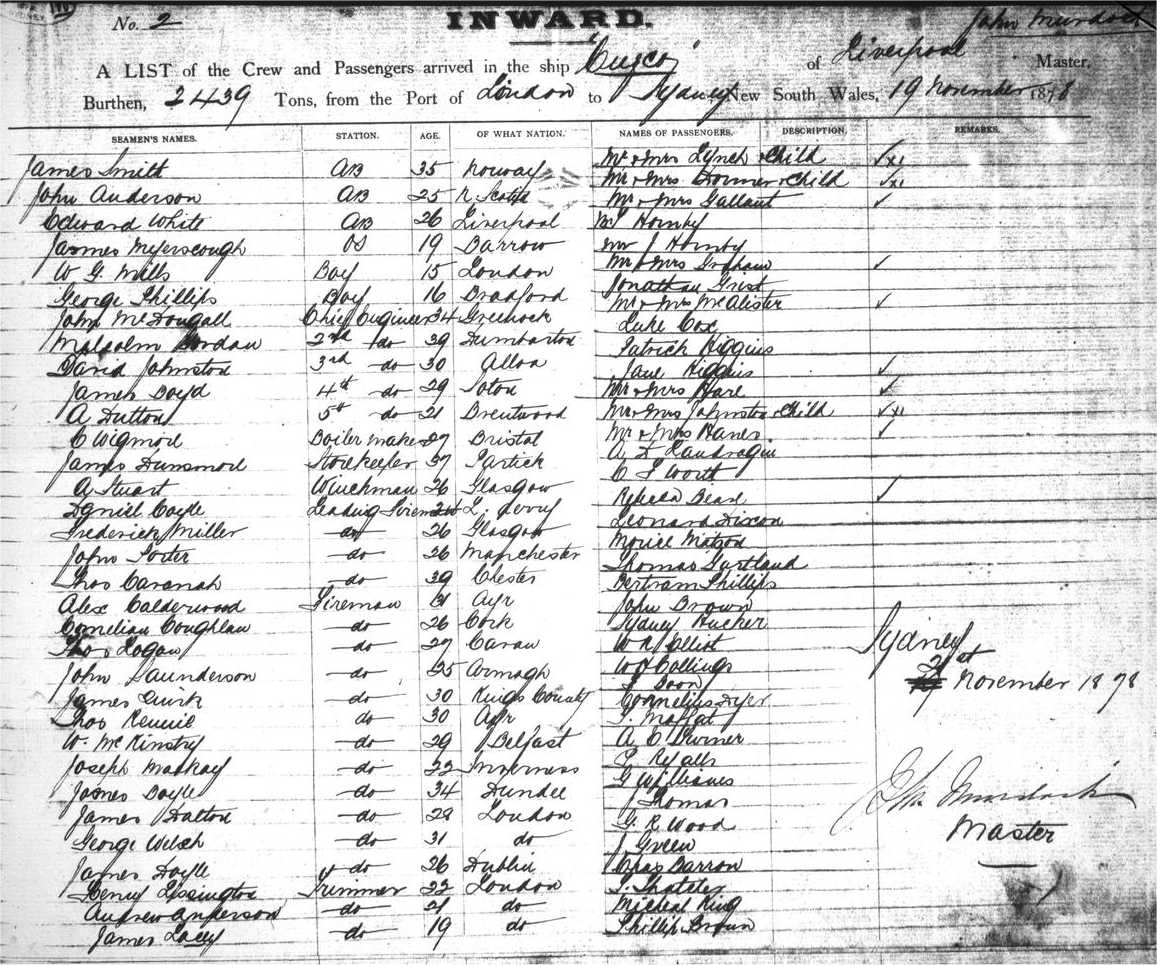 No. 2
INWARD.
John Murdoch
A LIST of the Crew and Passengers arrived in the ship "Cuzco" of Liverpool Master,
Burthen, 2439 Tons, from the Port of London to Sydney, New South Wales, 19 November 1878
SEAMEN'S NAMES. STATION. AGE. OF WHAT NATION. NAMES OF PASSENGERS. DESCRIPTION. REMARKS.
James Smith AB 35 Norway Mr & Mrs Lynch & Child
Mr & Mrs & Child
John Anderson AB 25 Mr & Mrs Gallant
Edward White AB 26 Liverpool Hornby
James Myerscough OS 19 Barrow Mr J Hornby
W G. Mills Boy 15 London Mr & Mrs Graham
Jonathan Grist
George Phillips Boy 16 Bradford Mr & Mrs McAlister
John McDougall Chief Engineer 34 Greenock Luke Cox
Malcolm 2nd do 39 Dumbarton Patrick Higgins
David Johnston 3rd do 30 Alloa Jane Higgins
James Boyd 4th do 29 Mr & Mrs Hare
A Dutton 5th do 21 Brentwood Mr & Mrs Johnston & Child
C Wigmore Boiler maker 27 Bristol Mr & Mrs Hanes
A D Landragin
James Dunsmore Storekeeper 37 Partick C J Worth
A Stuart Winchman 26 Glasgow Rebecca
Daniel Coyle Leading Fireman L. Derry Leonard Dixon
Frederick Miller do 26 Glasgow
John Porter do 26 Manchester Thomas Gartland
Thos Cavanah do 39 Chester Bertram Phillips
Alex Calderwood Fireman 31 Ayr John Brown
Cornelian Coughlan do 26 Cork Sydney Hucker
Thos Logan do 27 Cavan
John Saunderson do 25 Armagh W H Collings
James Quirk do 30 Kings County Cornelius Dyer
Thos Rennie do 30 Ayr J. Moffat
W. McKinstry do 29 Belfast A C
Joseph Mackay do 22 Inverness
G Williams
James Doyle do 34 Dundee J Thomas
James Dalton do London G. R Wood
George Welsh do 31 do J Green
James Doyle do 26 Dublin Chas Barron
Henry Trimmer 22 London
Andrew Anderson do 21 do Micheal King
James Lacey do 19 do Phillip Brown
Sydney
21st November 1878
Jn Murdoch
Master